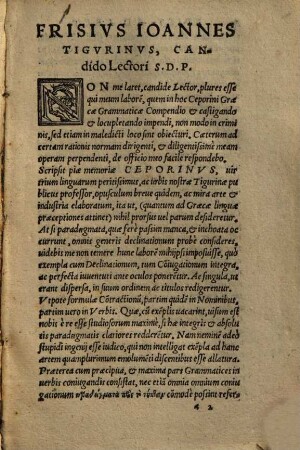 FRISIVS IOANNES
TIGVRINVS, CAN-
dido Lectori S. D. P.
NON me latet, candide Lector, plures esse
qui meum laborē, quem in hoc Ceporini Græ
cæ Grammaticæ Compendio & castigando
& locupletando impendi, non modo in crimi
nis, sed etiam in maledicti loco sint obiecturi. Cæterum ad
certam rationis normam dirigenti, & diligentißimè meam
operam perpendenti, de officio meo facilè respondebo.
Scripsit piæ memoriæ CEPORINVS, uir
trium linguarum peritißimus, ac urbis nostræ Tigurinæ pu
blicus professor, opusculum breue quidem, ac mira arte &
industria elaboratum, ita ut, (quantum ad Græcæ linguæ
præceptiones attinet) nihil prorsus uel parum desideretur.
At si paradigmata, quæ ferè paßim manca, & inchoata oc
currunt, omnis generis declinationum probè consideres,
uidebis me non temere hunc laborē mihi ipsi imposuisse, quo
exempla cùm Declinationum, tum Cōiugationum integra,
ac perfecta iuuentuti ante oculos ponerētur. At singula, ut
erant dispersa, in suum ordinem ac titulos redigerentur.
Vtpote formulæ Cōtractionū, partim quidē in Nominibus,
partim uero in Verbis. Quæ, cū exēplis uacarint, uisum est
nobis è re esse studiosorum maximè, si hæc integris & absolu
tis paradigmatis clariores redderētur. Nam neminē adeò
stupidi ingenij esse iudico, qui non intelligat exēpla ad hanc
artem quamplurimum emolumēti discentibus esse allatura.
Præterea cum præcipua, & maxima pars Grammatices in
verbis coniugandis consistat, nec etiā omnia omnium coniu
gationum cōmodè poßint refer-
a 2